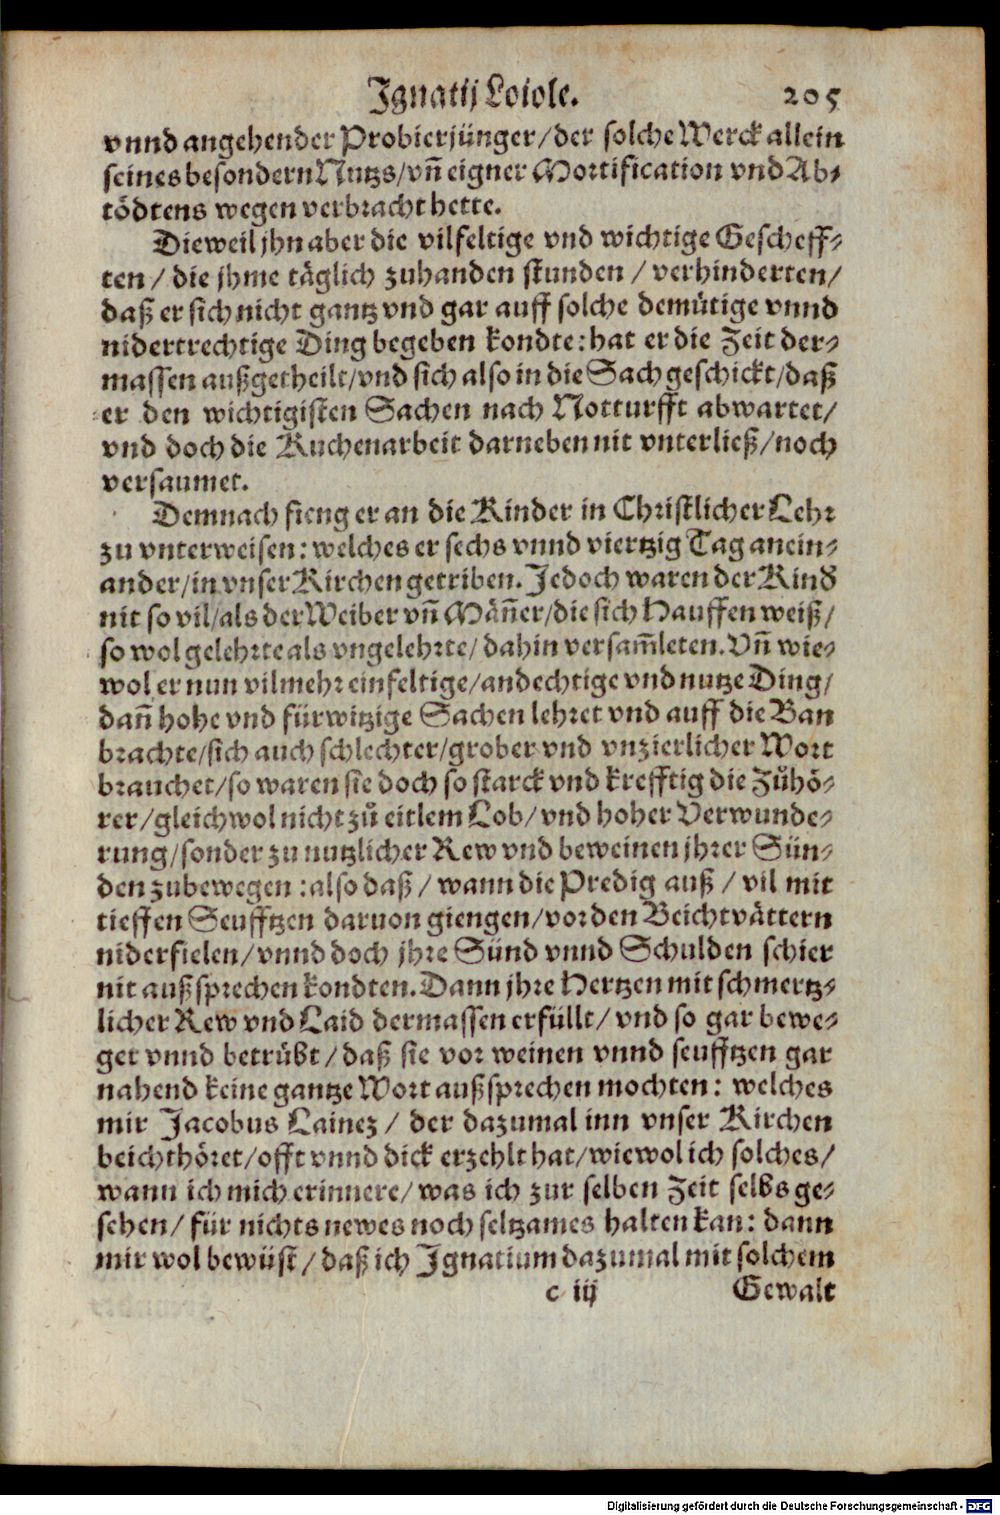 Ignatij Loiole. 205
vnnd angehender Probierjünger/der solche Werck allein
seines besondern Nutzs/vñ eigner Mortification vnd Ab-
tödtens wegen verbracht hette.
Dieweil jhn aber die vilfeltige vnd wichtige Gescheff-
ten / die jhme täglich zuhanden stunden / verhinderten/
daß er sich nicht gantz vnd gar auff solche demütige vnnd
nidertrechtige Ding begeben kondte: hat er die Zeit der-
massen außgetheilt/vnd sich also in die Sach geschickt/daß
er den wichtigisten Sachen nach Notturfft abwartet/
vnd doch die Kuchenarbeit darneben nit vnterließ/noch
versaumet.
Demnach fieng er an die Kinder in Christlicher Lehr
zu vnterweisen: welches er sechs vnnd viertzig Tag anein-
ander/in vnser Kirchen getriben. Jedoch waren der Kind
nit so vil/als der Weiber vñ Mäñer/die sich Hauffen weiß/
so wol gelehrte als vngelehrte/ dahin versam̃leten. Vñ wie-
wol er nun vilmehr einfeltige/andechtige vnd nutze Ding/
dañ hohe vnd fürwitzige Sachen lehret vnd auff die Ban
brachte/sich auch schlechter/grober vnd vnzierlicher Wort
brauchet/so waren sie doch so starck vnd krefftig die Zůhö-
rer/gleichwol nicht zů eitlem Lob/vnd hoher Verwunde-
rung/sonder zu nutzlicher Rew vnd beweinen jhrer Sün-
den zubewegen :also daß / wann die Predig auß / vil mit
tieffen Seufftzen daruon giengen/vor den Beichtvättern
niderfielen/vnnd doch jhre Sünd vnnd Schulden schier
nit außsprechen kondten. Dann jhre Hertzen mit schmertz-
licher Rew vnd Laid dermassen erfüllt/ vnd so gar bewe-
get vnnd betrübt/daß sie vor weinen vnnd seufftzen gar
nahend keine gantze Wort außsprechen mochten: welches
mir Jacobus Lainez / der dazumal inn vnser Kirchen
beichthöret/offt vnnd dick erzehlt hat/wiewol ich solches/
wann ich mich erinnere/was ich zur selben Zeit selbs ge-
sehen/ für nichts newes noch seltzames halten kan: dann
mir wol bewüst/daß ich Ignatium dazumal mit solchem
c iij Gewalt
Digitalisierung gefördert durch die Deutsche Forschungsgemeinschaft - DFG